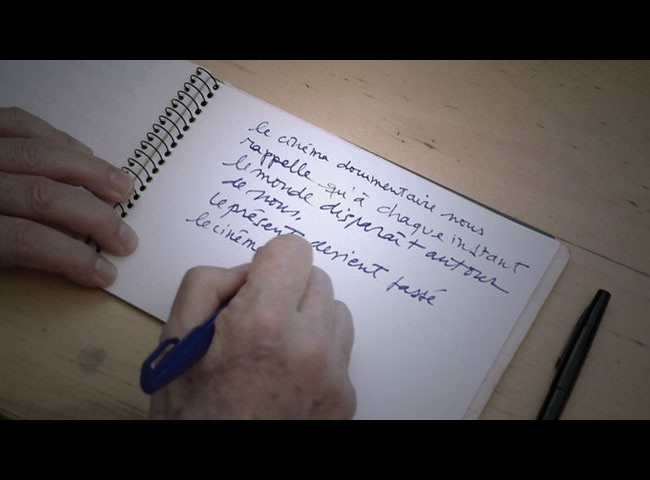 le cinéma documentaire nous
rappelle qu'à chaque instant
le monde disparaît autour
de nous.
le présent devient passé
le ciném